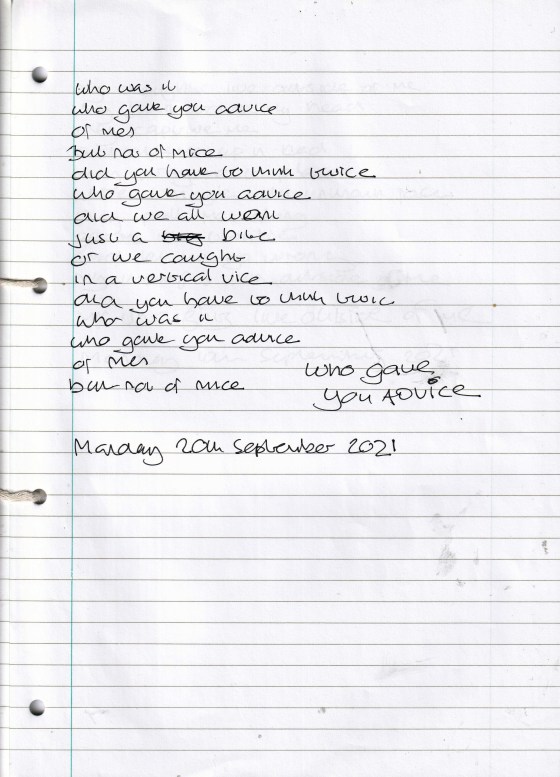 who was it
who gave you advice
of men
but not of mice
did you have to think twice
who gave you advice
did we all want
just a bite
or we caught
in a vertical vice
did you have to think twice
who was it
who gave you advice
of men
but not of mice
who gave
you ADVice
Monday 20th September 2021